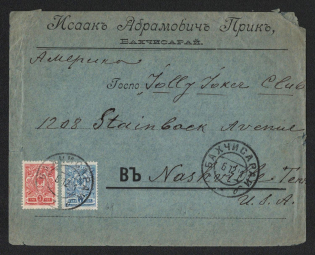 Исаакъ Абрамовичъ Прикъ,
БАХЧИСАРАЙ.
Америка
Госпо Jolly Joker Club
1208 Stainback Avenue,
ВЪ Nash Ten
U.S.A.
БАХЧИСАРАЙ